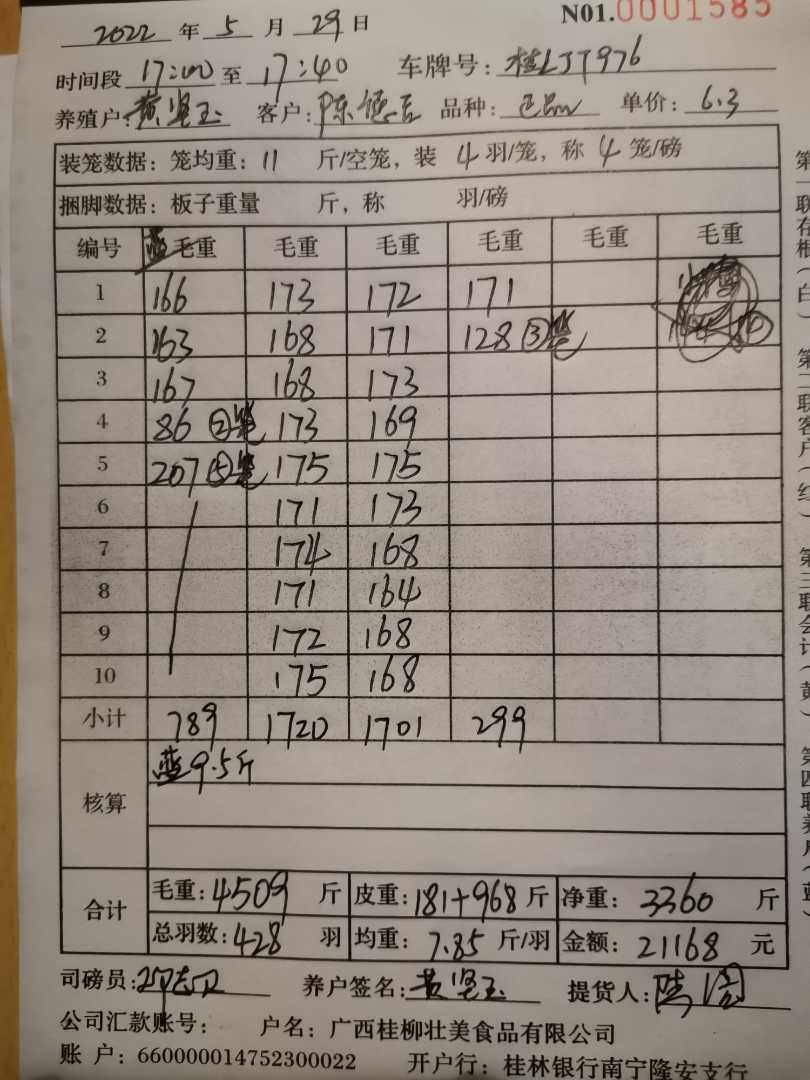 N01.0001585
2022 年 5 月 29 日
时间段 17:00 至 17:40 车牌号: 桂LJT976
养殖户: 黄坚玉 客户: 陈 品种: 单价: 6.3
装笼数据: 笼均重: 11 斤/空笼, 装 4 羽/笼, 称 4 笼/磅
捆脚数据: 板子重量 斤, 称 羽/磅
编号 蓝毛重 毛重 毛重 毛重 毛重 毛重
1 166 173 172 171
2 163 168 171 128 ③笼
3 167 168 173
4 86 ②笼 173 169
5 207 ⑤笼 175 175
6 171 173
7 174 168
8 171 164
9 172 168
10 175 168
小计 789 1720 1701 299
核算 蓝9.5斤
合计 毛重: 4509 斤 皮重: 181+968 斤 净重: 3360 斤
总羽数: 428 羽 均重: 7.85 斤/羽 金额: 21168 元
司磅员: 养户签名: 黄坚玉 提货人:
公司汇款账号: 户名: 广西桂柳壮美食品有限公司
账 户: 660000014752300022 开户行: 桂林银行南宁隆安支行
第一联存根(白) 第二联客户(红) 第三联会计(黄) 第四联养户(蓝)